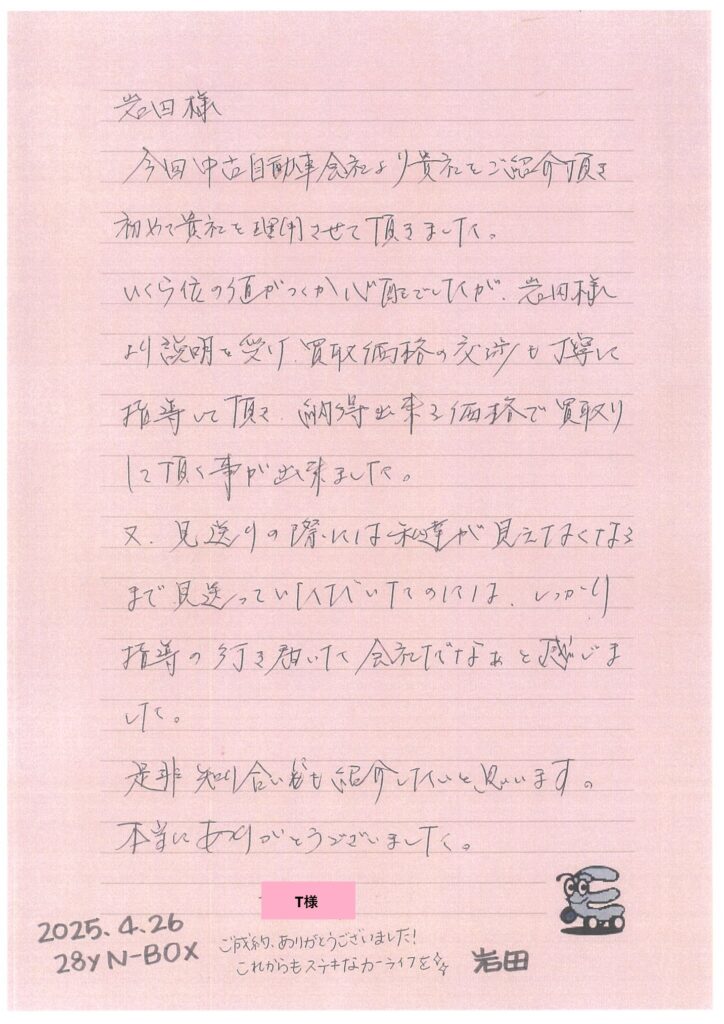 岩田様
今回中古自動車会社より貴社をご紹介頂き
初めて貴社を利用させて頂きました。
いくら位の値がつくか心配でしたが、岩田様
より説明を受け、買取価格の交渉も丁寧に
指導して頂き、納得出来る価格で買取り
して頂く事が出来ました。
又、見送りの際には私達が見えなくなる
まで見送っていただいたのには、しっかり
指導の行き届いた会社だなぁと感じま
した。
是非知り合いにも紹介したいと思います。
本当にありがとうございました。
T様
2025.4.26
28y N-BOX
ご成約、ありがとうございました!
これからもステキなカーライフを
岩田